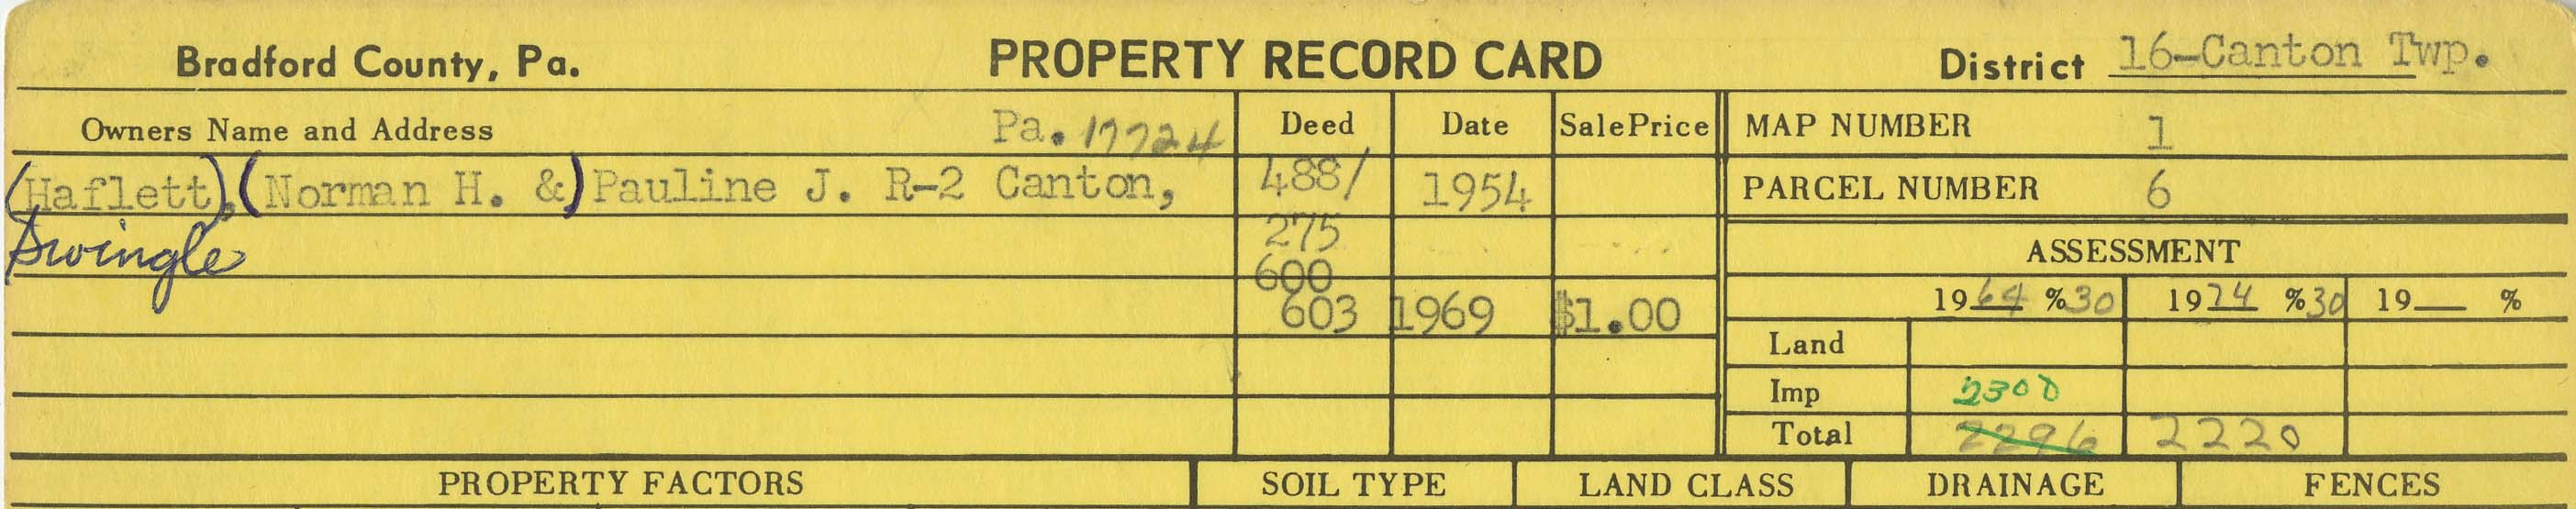 Bradford County, Pa. PROPERTY RECORD CARD District 16-Canton Twp.
Owners Name and Address Pa. 17724 Deed Date Sale Price MAP NUMBER 1
(Haflett), (Norman H. &) Pauline J. R-2 Canton, 488/ 1954 PARCEL NUMBER 6
Swingle 275 ASSESSMENT
600
603 1969 $1.00 1964 %30 1974 %30 19__ %
Land
Imp 2300
Total 2296 2220
PROPERTY FACTORS SOIL TYPE LAND CLASS DRAINAGE FENCES